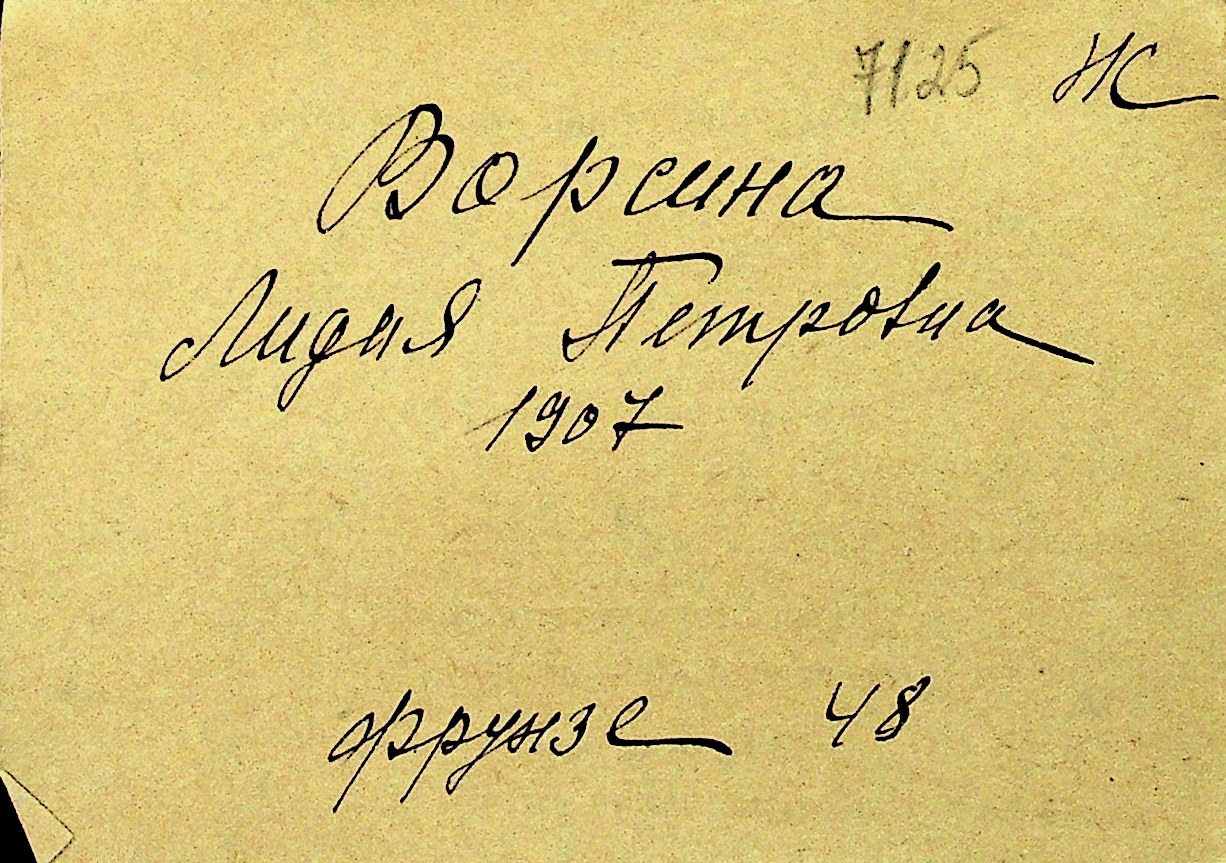 7125 Ж
Ворсина
Лидия Петровна
1907
Фрунзе 48